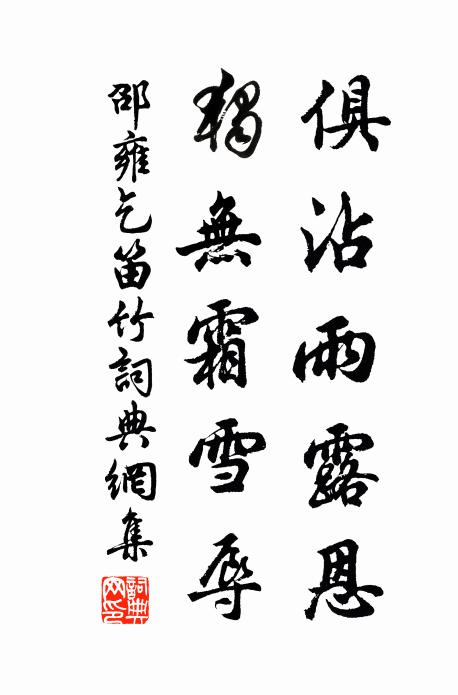 俱沾雨露恩
獨無霜雪辱
邵雍乞笛竹詞典網集
詞典網印